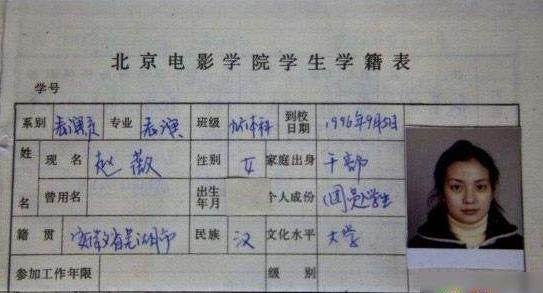 北京电影学院学生学籍表
学号
系别 表演系 专业 表演 班级 96本科 到校日期 1996年9月5日
姓名 现名 赵薇 性别 女 家庭出身 干部
曾用名 出生年月 个人成份 (团员)学生
籍贯 安徽省芜湖市 民族 汉 文化水平 大学
参加工作年限 级别